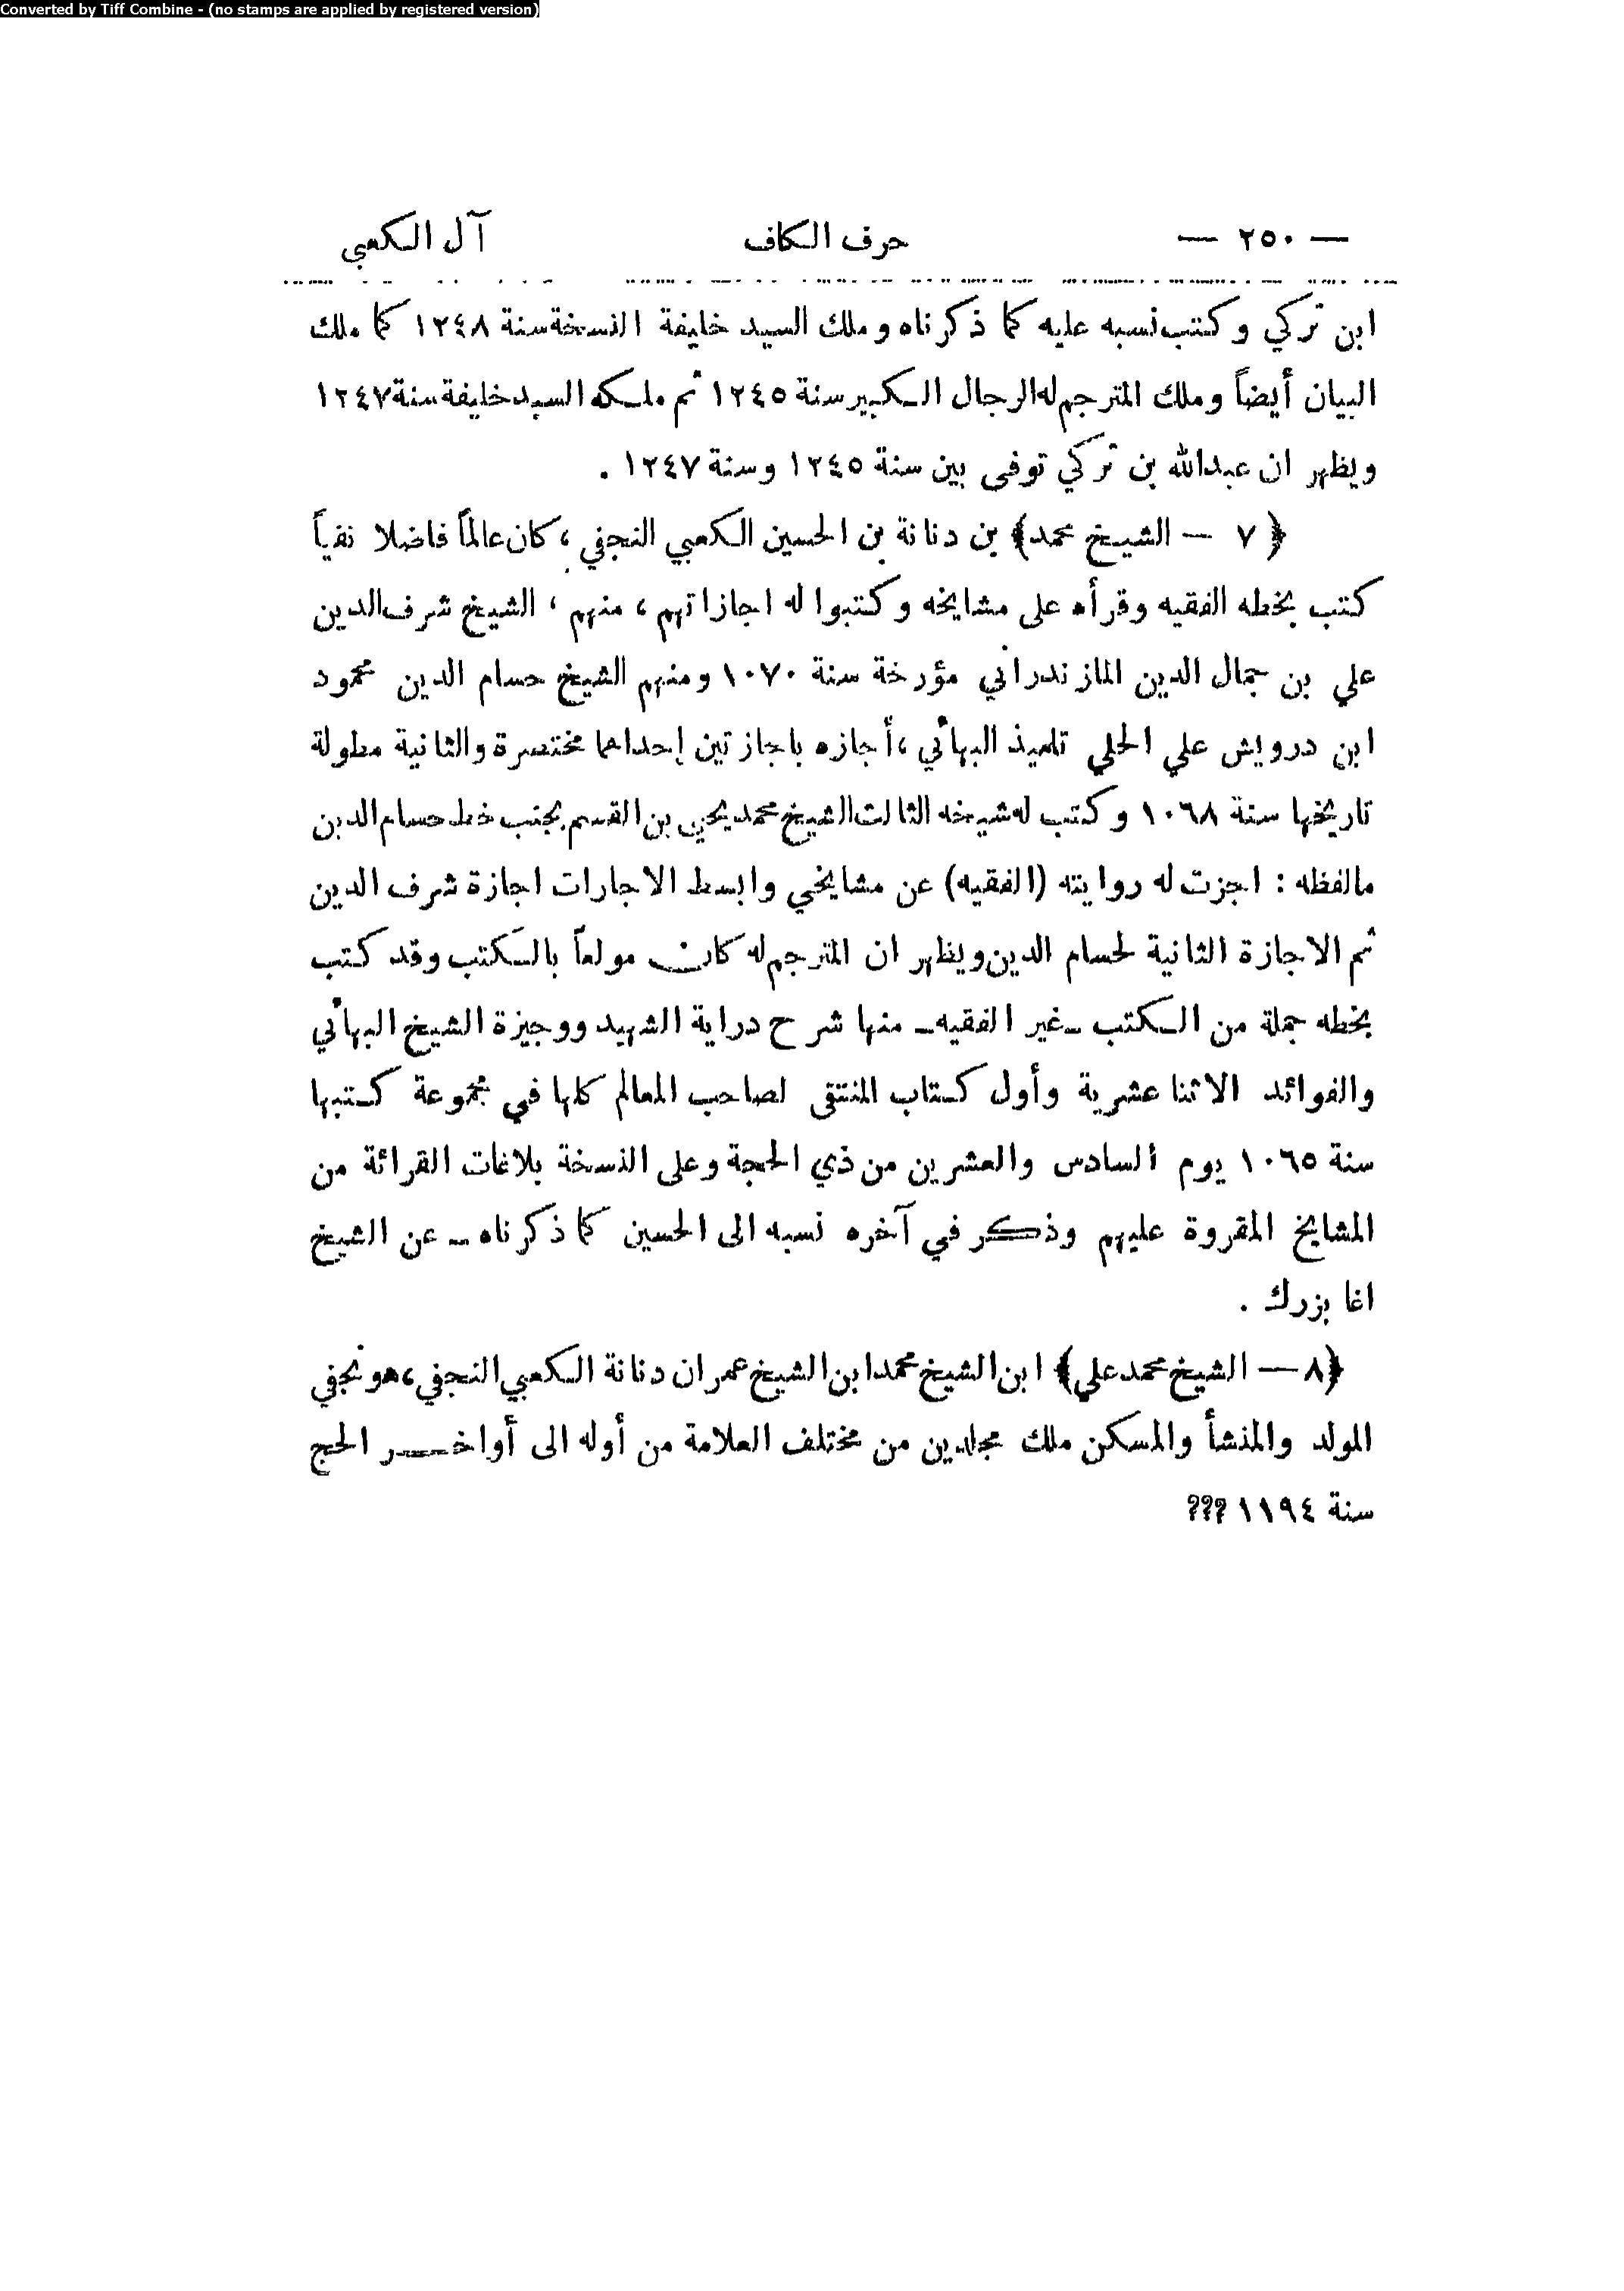 Converted by Tiff Combine - (no stamps are applied by registered version)
— ٢٥٠ — حرف الكاف آل الكعبي
ابن تركي وكتب نسبه عليه كما ذكرناه وملك السيد خليفة النسخة سنة ١٢٤٨ كما ملك
البيان أيضاً وملك المترجم له الرجال الكبير سنة ١٢٤٥ ثم ملكه السيد خليفة سنة ١٢٤٧
ويظهر ان عبدالله بن تركي توفى بين سنة ١٢٤٥ وسنة ١٢٤٧ .
﴿ ٧ — الشيخ محمد﴾ بن دنانة بن الحسين الكعبي النجفي ، كان عالماً فاضلا نقياً
كتب بخطه الفقيه وقرأه على مشايخه وكتبوا له اجازاتهم ، منهم ، الشيخ شرف الدين
علي بن جمال الدين المازندراني مؤرخة سنة ١٠٧٠ ومنهم الشيخ حسام الدين محمود
ابن درويش علي الحلي تلميذ البهائي ، أجازه باجازتين إحداهما مختصرة والثانية مطولة
تاريخها سنة ١٠٦٨ وكتب له شيخه الثالث الشيخ محمد يحيى بن القسم بجنب خط حسام الدين
مالفظه : اجزت له روايته (الفقيه) عن مشايخي وابسط الاجارات اجازة شرف الدين
ثم الاجازة الثانية لحسام الدين ويظهر ان المترجم له كان مولعاً بالكتب وقد كتب
بخطه جملة من الكتب -غير الفقيه- منها شرح دراية الشهيد ووجيزة الشيخ البهائي
والفوائد الاثنا عشرية وأول كتاب المنتقى لصاحب المعالم كلها في مجموعة كتبها
سنة ١٠٦٥ يوم السادس والعشرين من ذي الحجة وعلى النسخة بلاغات القرائة من
المشايخ المقروة عليهم وذكر في آخره نسبه الى الحسين كما ذكرناه - عن الشيخ
اغا بزرك .
﴿٨ — الشيخ محمد علي﴾ ابن الشيخ محمد ابن الشيخ عمران دنانة الكعبي النجفي ، هو نجفي
المولد والمنشأ والمسكن ملك مجلدين من مختلف العلامة من أوله الى أواخر الحج
سنة ١١٩٤ ؟؟؟